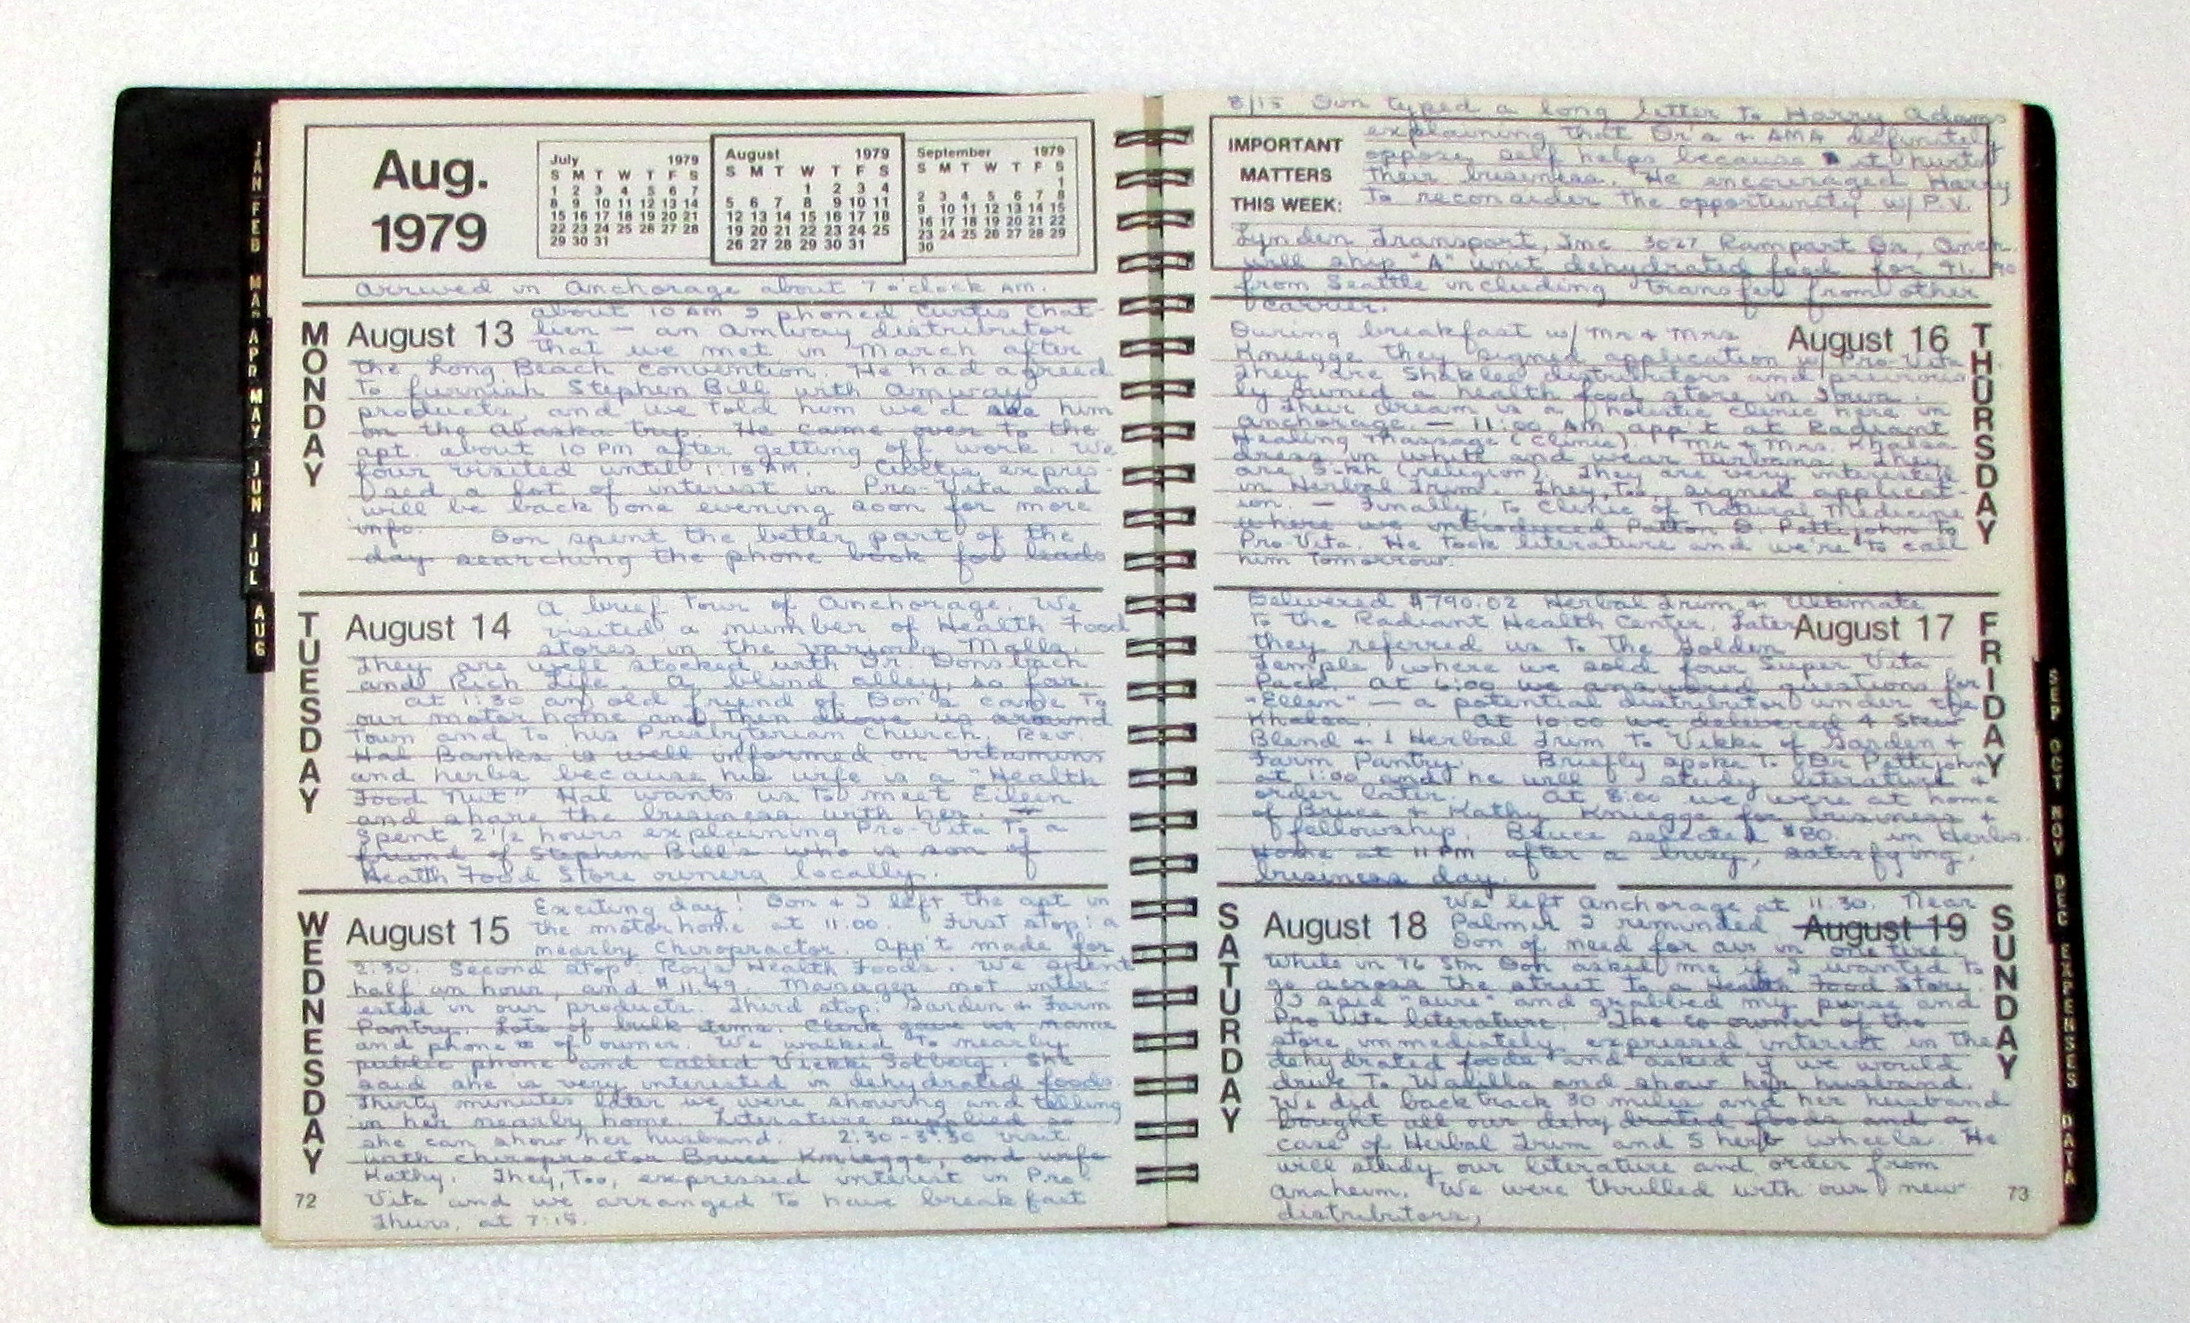 Aug.
1979
July 1979
S M T W T F S
1 2 3 4 5 6 7
8 9 10 11 12 13 14
15 16 17 18 19 20 21
22 23 24 25 26 27 28
29 30 31
August 1979
S M T W T F S
1 2 3 4
5 6 7 8 9 10 11
12 13 14 15 16 17 18
19 20 21 22 23 24 25
26 27 28 29 30 31
September 1979
S M T W T F S
1
2 3 4 5 6 7 8
9 10 11 12 13 14 15
16 17 18 19 20 21 22
23 24 25 26 27 28 29
30
arrived in Anchorage about 7 o'clock AM.
MONDAY
August 13
about 10 AM I phoned Curtis Chat-
lien — an Amway distributor
that we met in March after
the Long Beach convention. He had agreed
to furnish Stephen Bill with Amway
products, and we told him we'd see him
on the Alaska trip. He came over to the
apt. about 10 PM after getting off work. We
four visited until 1:15 AM. Curtis expres-
sed a lot of interest in Pro-Vita and
will be back one evening soon for more
info. Don spent the better part of the
day searching the phone book for leads
TUESDAY
August 14
A brief tour of Anchorage. We
visited a number of Health Food
stores in the various Malls.
They are well stocked with Dr. Donsbach
and Rich Life. A blind alley, so far.
At 1:30 an old friend of Don's came to
our motor home and then drove us around
town and to his Presbyterian Church. Rev.
Hal Banks is well informed on vitamins
and herbs because his wife is a "Health
Food Nut". Hal wants us to meet Eileen
and share the business with her.
Spent 2 1/2 hours explaining Pro-Vita to a
friend of Stephen Bill's who is son of
Health Food Store owners locally.
WEDNESDAY
August 15
Exciting day! Don & I left the apt in
the motorhome at 11:00. First stop: a
nearby Chiropractor. App't made for
2:30. Second stop: Roy's Health Foods. We spent
half an hour, and $11.49. Manager not inter-
ested in our products. Third stop: Garden & Farm
Pantry. Lots of bulk items. Clerk gave us name
and phone # of owner. We walked to nearby
public phone and called Vikki Solberg. She
said she is very interested in dehydrated foods
Thirty minutes later we were showing and telling
in her nearby home. Literature supplied so
she can show her husband. 2:30-3:30 visit
with chiropractor Bruce Kniegge, and wife
Kathy. They, too, expressed interest in Pro
Vita and we arranged to have breakfast
Thurs. at 7:15.
72
8/15 Don typed a long letter to Harry Adams
explaining that Dr's & AMA definitely
oppose self helps because it hurts
their business. He encouraged Harry
to reconsider the opportunity w/ P.V.
IMPORTANT
MATTERS
THIS WEEK:
Lynden Transport, Inc 3027 Rampart Dr, Anch.
will ship "A" unit dehydrated food for
from Seattle including transfer from other
carrier.
THURSDAY
August 16
During breakfast w/ Mr & Mrs
Kniegge they signed application w/ Pro Vita
They are Shaklee distributors and previous-
ly owned a health food store in Iowa.
Their dream is a holistic clinic here in
Anchorage. — 11:00 AM app't at Radiant
Healing Massage (Clinic) Mr & Mrs. Khalsa
dress in white and wear turbans. They
are Sikh (religion). They are very interested
in Herbal Trim. They, too, signed applicat-
ion. — Finally, to Clinic of Natural Medicine
where we introduced Patton D. Pettijohn to
Pro Vita. He took literature and we're to call
him tomorrow.
FRIDAY
August 17
Delivered $790.02 Herbal Trim & Ultimate
to the Radiant Health Center. Later
they referred us to the Golden
Temple where we sold four Super Vita
Pack. At 6:00 we answered questions for
"Ellen" — a potential distributor under the
Khalsa. At 10:00 we delivered 4 Stew
Blend & 1 Herbal Trim to Vikki of Garden &
Farm Pantry. Briefly spoke to Dr Pettijohn
at 1:00 and he will study literature &
order later. At 8:00 we were at home
of Bruce & Kathy Kniegge for business &
fellowship. Bruce selected $80. in Herbs.
Home at 11 PM after a busy, satisfying,
business day.
SATURDAY
August 18
SUNDAY
August 19
We left Anchorage at 11:30. Near
Palmer I reminded
Don of need for air in one tire.
While in 76 Stn Don asked me if I wanted to
go across the street to a Health Food Store.
I said "sure" and grabbed my purse and
Pro Vita literature. The co-owner of the
store immediately expressed interest in the
dehydrated foods and asked if we would
drive to Wasilla and show her husband.
We did backtrack 30 miles and her husband
bought all our dehydrated foods and a
case of Herbal Trim and 5 herb wheels. He
will study our literature and order from
Anaheim. We were thrilled with our new
distributors,
73
JAN FEB MAR APR MAY JUN JUL AUG
SEP OCT NOV DEC EXPENSES DATA